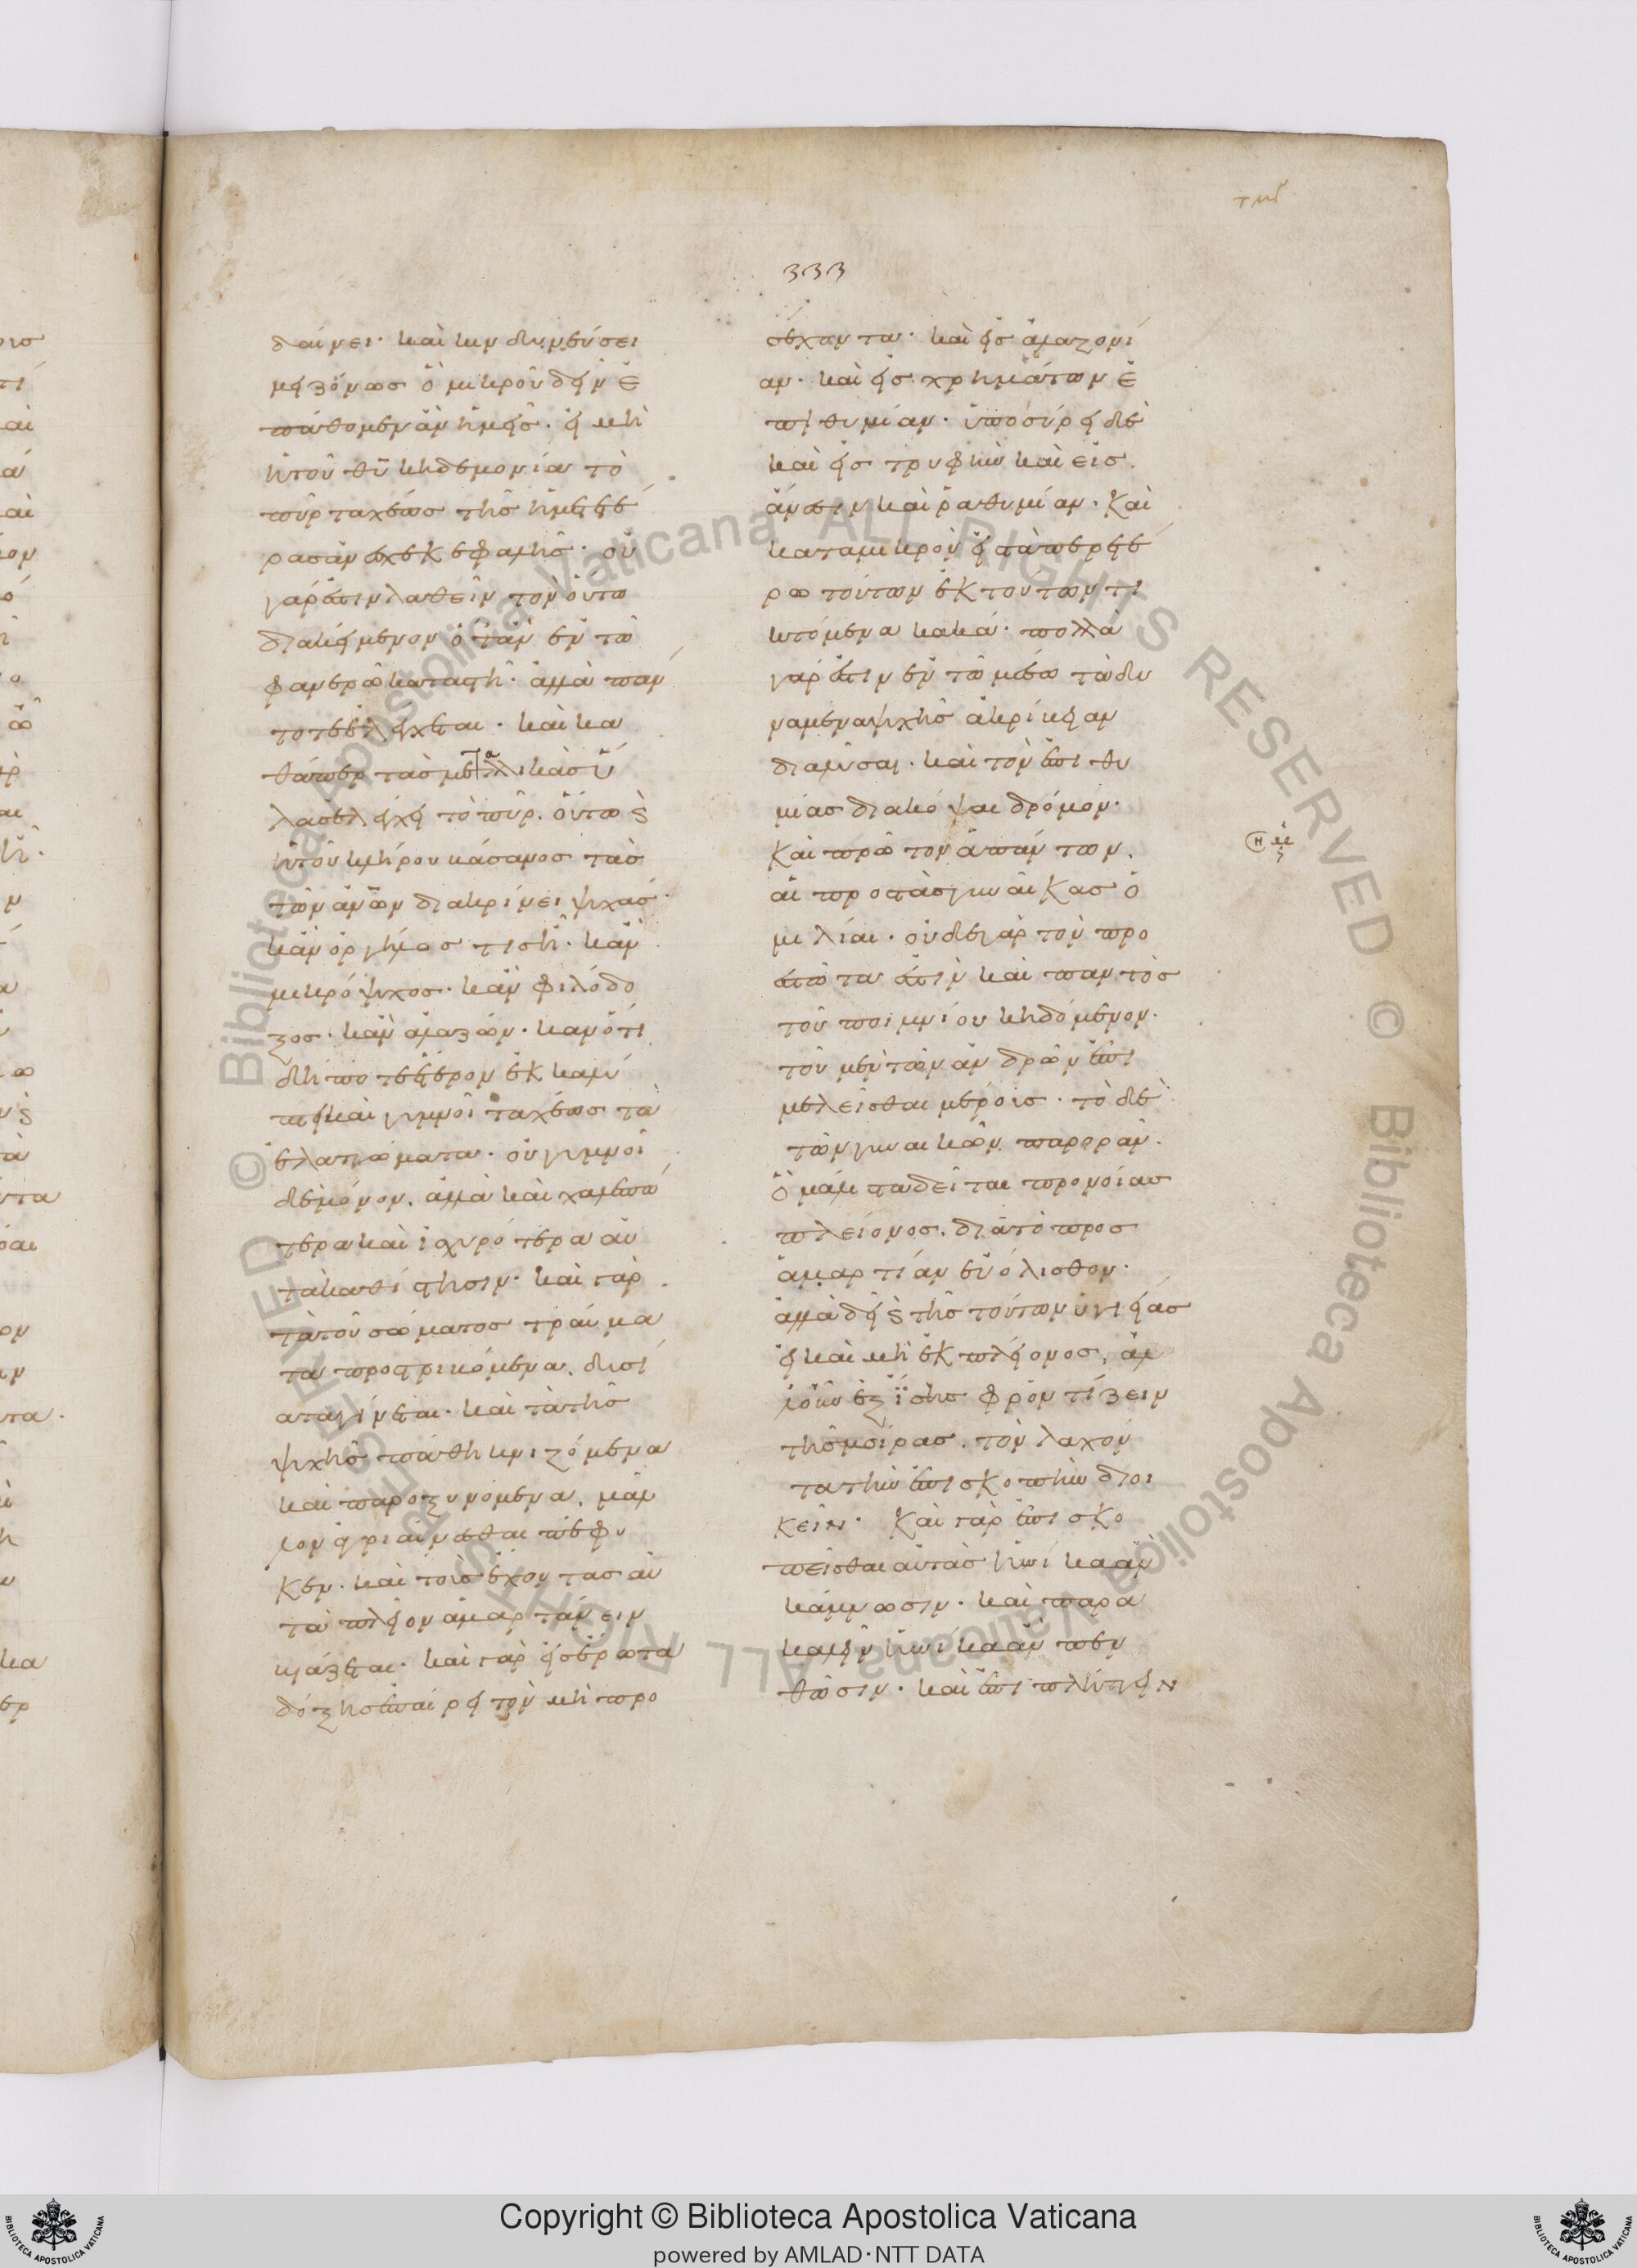 τμγ
333
δαίνει· καὶ κινδυνεύσει
μειζόνως ὃ μικροῦ δεῖν ἐ
πάθομεν ἂν ἡμεῖς· εἰ μὴ
ἡ τοῦ θυ κηδεμονία τὸ
πῦρ ταχέως τῆς ἡμετέ
ρας ἀνέσχε κεφαλῆς· οὐ
γάρ ἐστιν λαθεῖν τὸν οὕτω
διακείμενον ὅταν ἐν τῶ
φανερῶ καταστῆ· ἀλλὰ πάν
τοτε ἐλέγχεται· καὶ κα
θάπερ τὰς μεταλλικὰς ὕ
λας ἐλέγχει τὸ πῦρ. οὕτω καὶ
ἡ τοῦ κλήρου βάσανος τὰς
τῶν ἀνῶν διακρίνει ψυχάς·
κἂν ὀργίλος τις ἦ· κἂν
μικρόψυχος· κἂν φιλόδο
ξος· κἂν ἀλαζών· κἂν ὁτι
δήποτε ἕτερον ἐκκαλύ
πτει καὶ γυμνοῖ ταχέως τὰ
ἐλαττώματα· οὐ γυμνοῖ
δὲ μόνον. ἀλλὰ καὶ χαλεπώ
τερα καὶ ἰσχυρότερα αὐ
τὰ καθίστησιν· καὶ γὰρ
τὰ τοῦ σώματος τραύμα
τα προστριβόμενα. δυσί
ατα γίνεται· καὶ τὰ τῆς
ψυχῆς πάθη κνιζόμενα
καὶ παροξυνόμενα. μᾶλ
λον ἀγριαίνεσθαι πέφυ
κεν· καὶ τοὺς ἔχοντας αὐ
τὰ πλεῖον ἁμαρτάνειν
βιάζεται· καὶ γὰρ εἰς ἔρωτα
δόξης ἐπαίρει τὸν μὴ προ
σέχοντα· καὶ εἰς ἀλαζονεί
αν· καὶ εἰς χρημάτων ἐ
πιθυμίαν· ὑποσύρει δὲ
καὶ εἰς τρυφὴν καὶ εἰς
ἄνεσιν καὶ ῥαθυμίαν· καὶ
κατα μικρὸν εἰς τὰ περαιτέ
ρω τούτων ἐκ τούτων τι
κτόμενα κακά· πολλὰ
γάρ ἐστιν ἐν τῶ μέσω τὰ δυ
νάμενα ψυχῆς ἀκρίβειαν
διαλῦσαι· καὶ τὸν ἐπιθυ
μίας διακόψαι δρόμον·
καὶ πρῶτον ἁπάντων.
αἱ προς τὰς γυναῖκας ὁ
μιλίαι· οὐδὲ γὰρ τὸν προ
εστῶτα ἔστιν καὶ παντὸς
τοῦ ποιμνίου κηδόμενον·
τοῦ μὲν τῶν ἀνδρῶν ἐπι
μελεῖσθαι μέρους· τὸ δὲ
τῶν γυναικῶν παρορᾶν.
ὃ μάλιστα δεῖται προνοίας
πλείονος. διὰ τὸ προς
ἁμαρτίαν εὐόλισθον·
ἀλλὰ δεῖ καὶ τῆς τούτων ὑγιείας
εἰ καὶ μὴ ἐκ πλείονος, ἀλ
λ' οὖν ἐξ ἴσης φροντίζειν
τῆς μοίρας. τὸν λαχόν
τα τὴν ἐπισκοπὴν διοι
κεῖν· καὶ γὰρ ἐπισκο
πεῖσθαι αὐτὰς ἡνίκα ἂν
κάμνωσιν· καὶ παρα
καλεῖν ἡνίκα ἂν πεν
θῶσιν· καὶ ἐπιπλήττειν